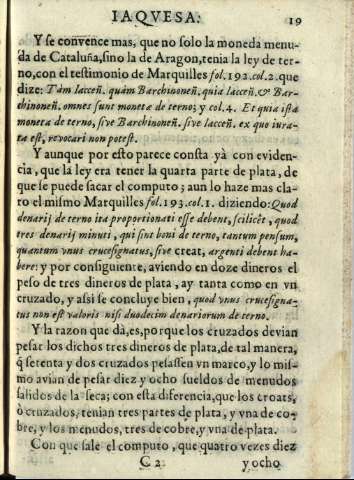 IAQVESA. 19
Y se convence mas, que no solo la moneda menu-
da de Cataluña, sino la de Aragon, tenia la ley de ter-
no, con el testimonio de Marquilles fol. 192. col. 2. que
dize: Tàm Iacceñ. quàm Barchinoneñ. quia Iacceñ. & Bar-
chinoneñ. omnes sunt monetæ de terno; y col. 4. Et quia ista
moneta de terno, sive Barchinoneñ. sive Iacceñ. ex quo iura-
ta est, revocari non potest.
Y aunque por esto parece consta yà con eviden-
cia, que la ley era tener la quarta parte de plata, de
que se puede sacar el computo; aun lo haze mas cla-
ro el mismo Marquilles fol. 193. col. 1. diziendo: Quod
denarij de terno ita proportionati esse debent, scilicèt, quod
tres denarij minuti, qui sint boni de terno, tantum pensum,
quantum vnus crucesignatus, sive creat, argenti debent ha-
bere: y por consiguiente, aviendo en doze dineros el
peso de tres dineros de plata, ay tanta como en vn
cruzado, y assi se concluye bien, quod vnus crucesigna-
tus non est valoris nisi duodecim denariorum de terno.
Y la razon que dà, es, porque los cruzados devian
pesar los dichos tres dineros de plata, de tal manera,
q̃ setenta y dos cruzados pesassen vn marco, y lo mis-
mo avian de pesar diez y ocho sueldos de menudos
salidos de la seca; con esta diferencia, que los croats,
ò cruzados, tenian tres partes de plata, y vna de co-
bre, y los menudos, tres de cobre, y vna de plata.
Con que sale el computo, que quatro vezes diez
C 2 y ocho